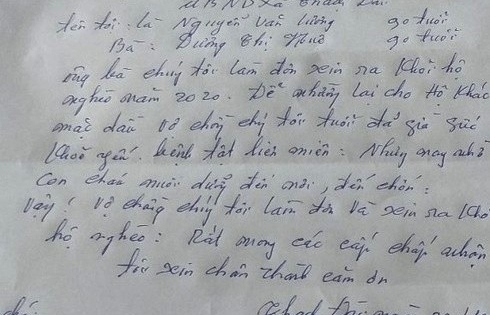 UBND xã Thạch Đài
tên tôi: là Nguyễn Văn Lương 90 tuổi
Bà: Dương Thị Huê 90 tuổi
ông bà chúng tôi làm đơn xin ra khỏi hộ
nghèo năm 2020. Để nhường lại cho Hộ Khác
mặc dầu vợ chồng chúng tôi tuổi đã già sức
khỏe yếu. bệnh tật liên miên: Nhưng nay nhờ
con cháu nuôi dưỡng đến nơi, đến chốn:
vậy! vợ chồng chúng tôi làm đơn và xin ra khỏ
hộ nghèo: Rất mong các cấp chấp nhận
tôi xin chân thành cảm ơn
Thạch Đài